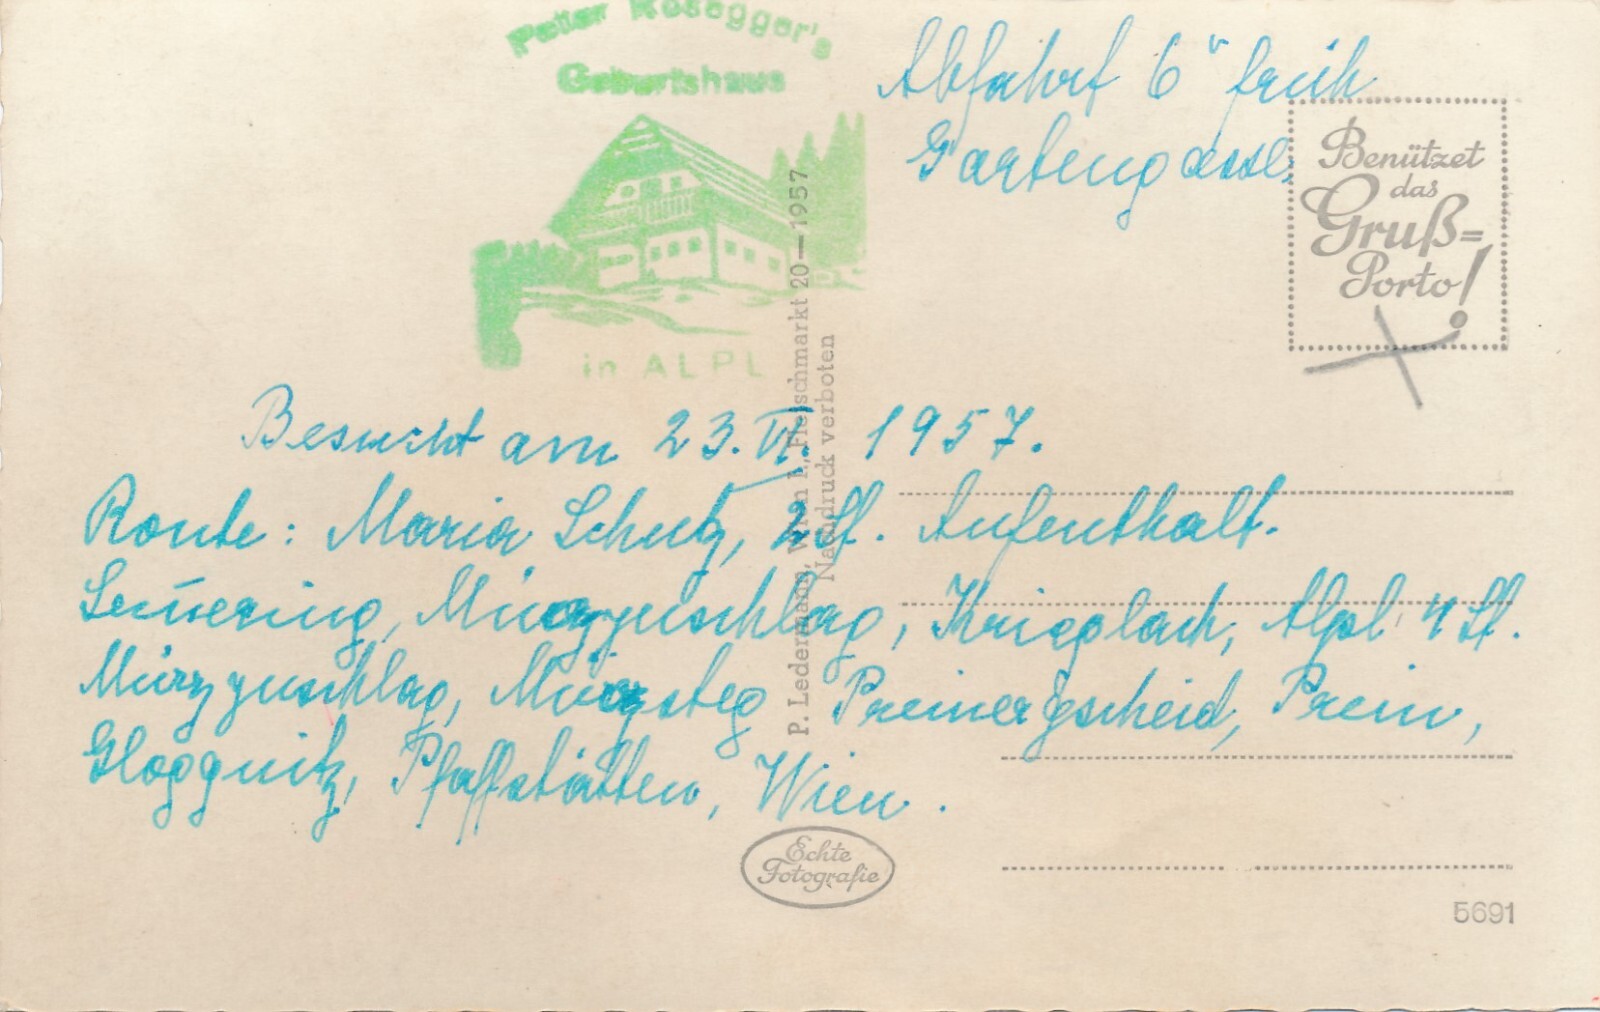 Peter Rosegger's
Geburtshaus
in ALPL
Abfahrt 6" früh
Gartengasse
Benützet
das
Gruß=
Porto!
Besucht am 23. VI. 1957.
Route: Maria Schutz, 2 St. Aufenthalt.
Semmering, Mürzzuschlag, Krieglach, Alpl 4 St.
Mürzzuschlag, Mürzsteg Preinergscheid, Prein,
Gloggnitz, Pfaffstätten, Wien.
P. Ledermann, Wien I., Fleischmarkt 20—1957
Nachdruck verboten
Echte
Fotografie
5691